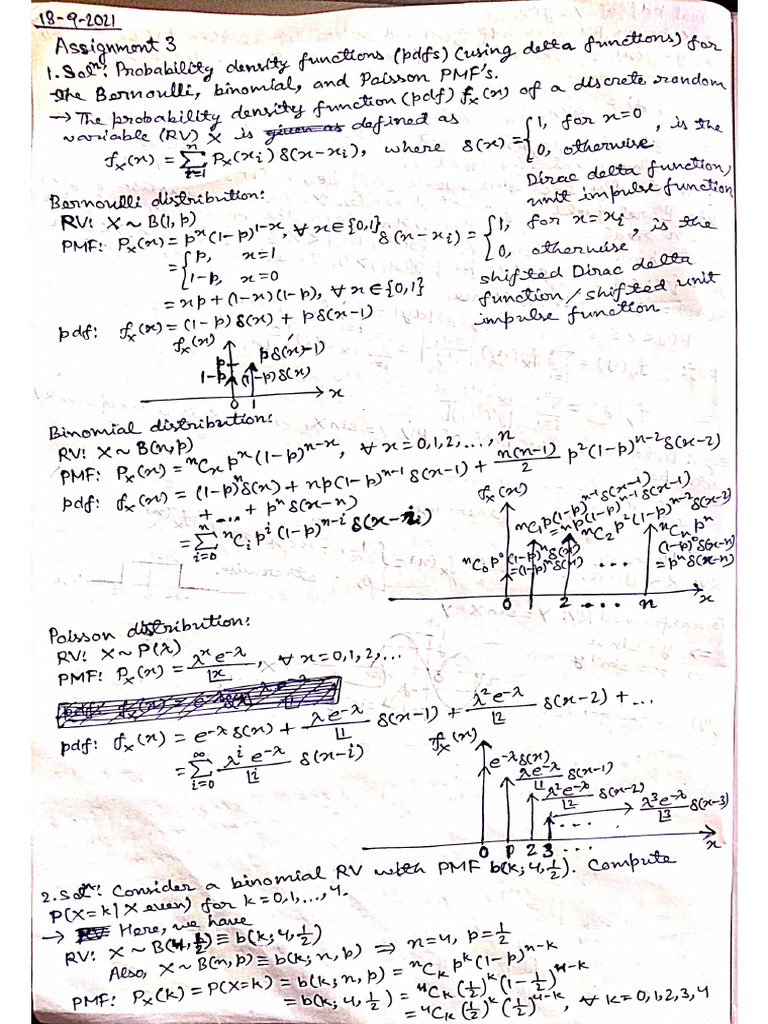 18-9-2021
Assignment 3
1. Solⁿ: Probability density functions (pdfs) (using delta functions) for
the Bernoulli, binomial, and Poisson PMF's.
→ The probability density function (pdf) fₓ(x) of a discrete random
variable (RV) X is given as defined as
fₓ(x) = Σⁿᵢ₌₁ Pₓ(xᵢ) δ(x-xᵢ), where δ(x) = {1, for x=0
0, otherwise, is the
Dirac delta function/
unit impulse function
Bernoulli distribution:
RV: X ~ B(1, p)
PMF: Pₓ(x) = pˣ(1-p)¹⁻ˣ, ∀ x ∈ {0,1}
= {p, x=1
1-p, x=0
= xp + (1-x)(1-p), ∀ x ∈ {0,1}
δ(x-xᵢ) = {1, for x=xᵢ
0, otherwise, is the
shifted Dirac delta
function/shifted unit
impulse function
pdf: fₓ(x) = (1-p) δ(x) + pδ(x-1)
fₓ(x)
p
pδ(x-1)
1-p
(1-p)δ(x)
0 1 x
Binomial distribution:
RV: X ~ B(n, p)
PMF: Pₓ(x) = ⁿCₓ pˣ (1-p)ⁿ⁻ˣ, ∀ x = 0,1,2,...,n
pdf: fₓ(x) = (1-p)ⁿδ(x) + np(1-p)ⁿ⁻¹ δ(x-1) + n(n-1)/2 p²(1-p)ⁿ⁻² δ(x-2)
+ ... + pⁿ δ(x-n)
= Σⁿᵢ₌₀ ⁿCᵢ pⁱ (1-p)ⁿ⁻ⁱ δ(x-i)
fₓ(x)
ⁿC₁p(1-p)ⁿ⁻¹δ(x-1)
= np(1-p)ⁿ⁻¹δ(x-1)
ⁿC₂ p²(1-p)ⁿ⁻²δ(x-2)
ⁿCₙ pⁿ
(1-p)⁰δ(x-n)
= pⁿδ(x-n)
ⁿC₀ p⁰(1-p)ⁿδ(x)
= (1-p)ⁿδ(x)
...
0 1 2 ... n x
Poisson distribution:
RV: X ~ P(λ)
PMF: Pₓ(x) = λˣ e^-λ / |x, ∀ x = 0,1,2,...
pdf: fₓ(x) = e^-λ δ(x) + λ e^-λ / |1 δ(x-1) + λ² e^-λ / |2 δ(x-2) + ...
= Σ^∞ᵢ₌₀ λⁱ e^-λ / |i δ(x-i)
fₓ(x)
e^-λ δ(x)
λe^-λ / |1 δ(x-1)
λ²e^-λ / |2 δ(x-2)
λ³e^-λ / |3 δ(x-3)
...
0 2 3 ... x
2. Solⁿ: Consider a binomial RV with PMF b(k; 4, 1/2). Compute
P(X=k | X even) for k = 0,1,...,4.
→ RV Here, we have
RV: X ~ B(4, 1/2) ≡ b(k; 4, 1/2)
Also, X ~ B(n, p) ≡ b(k; n, p) ⇒ n=4, p=1/2
PMF: Pₓ(k) = P(X=k) = b(k; n, p) = ⁿCₖ pᵏ (1-p)ⁿ⁻ᵏ
= b(k; 4, 1/2) = ⁴Cₖ (1/2)ᵏ (1-1/2)⁴⁻ᵏ
= ⁴Cₖ (1/2)ᵏ (1/2)⁴⁻ᵏ, ∀ k = 0,1,2,3,4